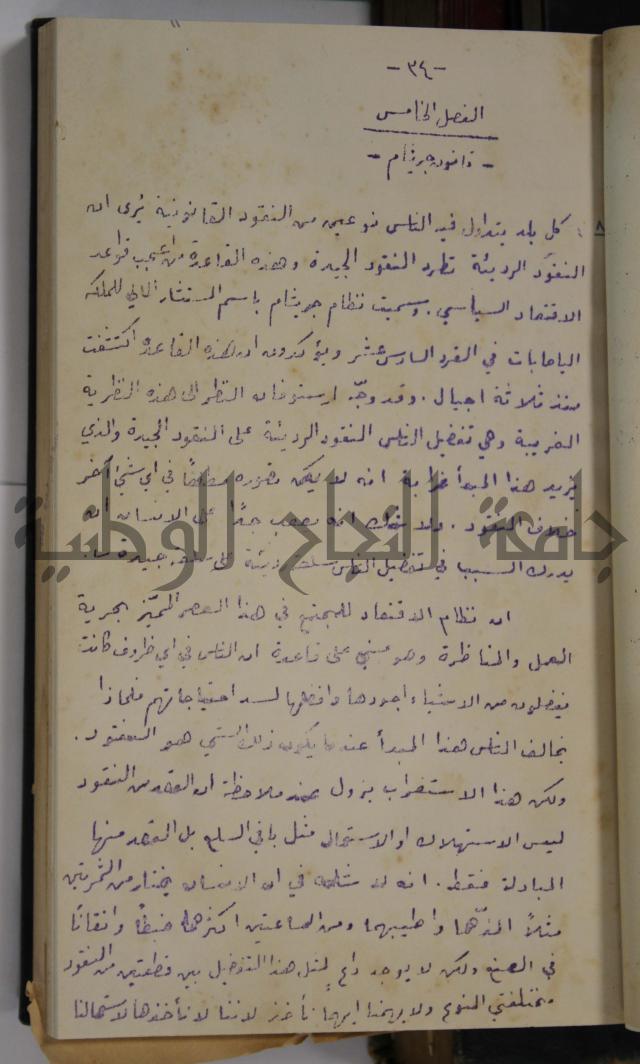 - ٣٤ -
الفصل الخامس
- قانون جريشام -
كل بلد يتداول فيه الناس نوعين من النقود القانونية يُرى ان
النقود الرديئة تطرد النقود الجيدة وهذه القاعدة من اعجب قواعد
الاقتصاد السياسي. وسميت نظام جريشام باسم المستشار المالي للملكه
اليصابات في القرن السادس عشر ويؤكدون ان هذه القاعدة اكتشفت
منذ ثلاثة اجيال. وقد وجّه ارستوفان النظر الى هذه النظرية
الغريبة وهي تفضيل الناس النقود الرديئة على النقود الجيدة والذي
يزيد هذا المبدأ غرابة انه لا يمكن في اي شيء آخر
خلاف النقود. ولا شك انه يصعب جدًا على الانسان ان
يدرك السبب في تفضيل الناس سلعة رديئة على سلعة جيدة
ان نظام الاقتصاد للمجتمع في هذا العصر المميّز بحرية
العمل والمناظرة وهو مبني على قاعدة ان الناس في اي ظروف كانت
يفضلون من الاشياء اجودها وافضلها لسد احتياجاتهم فلماذا
يخالف الناس هذا المبدأ عندما يكون ذلك الشيء هو النقود.
ولكن هذا الاستغراب يزول عند ملاحظة ان القصد من النقود
ليس الاستهلاك او الاستعمال مثل باقي السلع بل القصد منها
المبادلة فقط. انه لا شك في ان الانسان يختار من الثمرتين
مثلاً الذّها واطيبها ومن الساعتين اكثرها ضبطًا واتقانًا
في الصنع ولكن لا يوجد داعٍ لمثل هذا التفضيل بين قطعتين من النقود
مختلفتي النوع ولا يهمنا ايهما نأخذ لاننا لا نأخذها لاستعمالنا
جامعة النجاح الوطنية